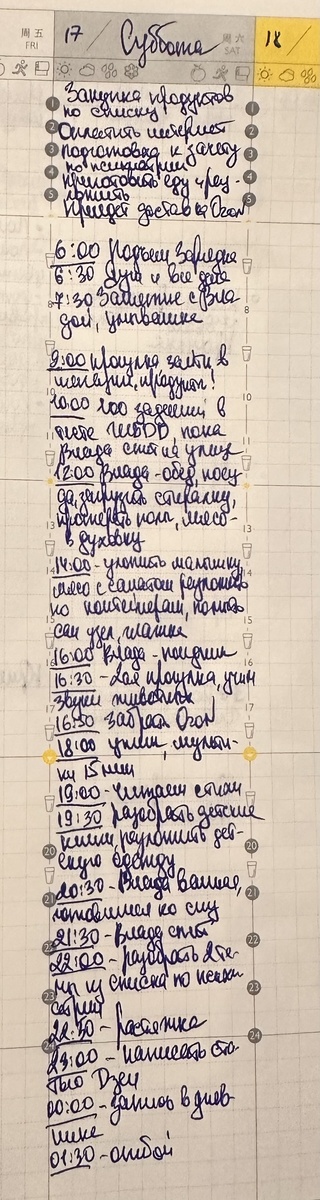 周五
FRI
17 / Суббота
周六
SAT
18 /
1 Закупка продуктов
по списку
2 Оплатить интернет
3 подготовка к зачету
по психиатрии
4 приготовить еду и раз-
5 ложить
Придет доставка Огон
6:00 Подъем Зарядка
6:30 Душ и все дела
7:30 Занятие с Вла-
дой, умывашка
9:00 прогулка зайти в
магазин, продукты!
10:00 100 заданий в
тесте, пока
Влада спит на улице
12:00 Влада - обед, посу-
да, загрузить стиралку,
протереть полы, мясо -
в духовку
14:00 - уложить малышку,
мясо с салатом разложить
по контейнерам, помыть
сан узел, глажка
16:00 Влада - полдник
16:30 - 2ая прогулка, учим
звуки животных
16:50 Забрать Огон
18:00 ужин, мульти-
ки 15 мин
19:00 - Читаем стихи
19:30 разобрать детские
книги, разложить дет-
скую одежду
20:30 - Влада ванная,
готовимся ко сну
21:30 - Влада спит
22:00 - разобрать 2 те-
мы из списка по психи-
атрии
22:30 - растяжка
23:00 - написать ста-
тью Дзен
00:00 - запись в днев-
нике
01:30 - отбой